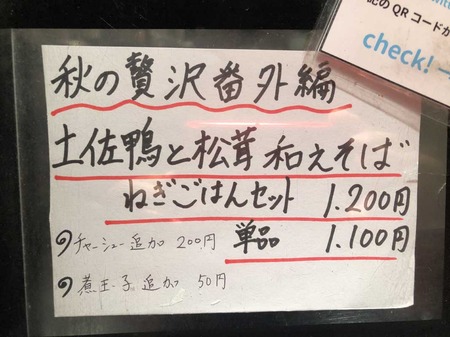 記のQRコードか
check! →
秋の贅沢番外編
土佐鴨と松茸和えそば
ねぎごはんセット 1.200円
単品 1.100円
チャーシュー追加 200円
煮玉子追加 50円